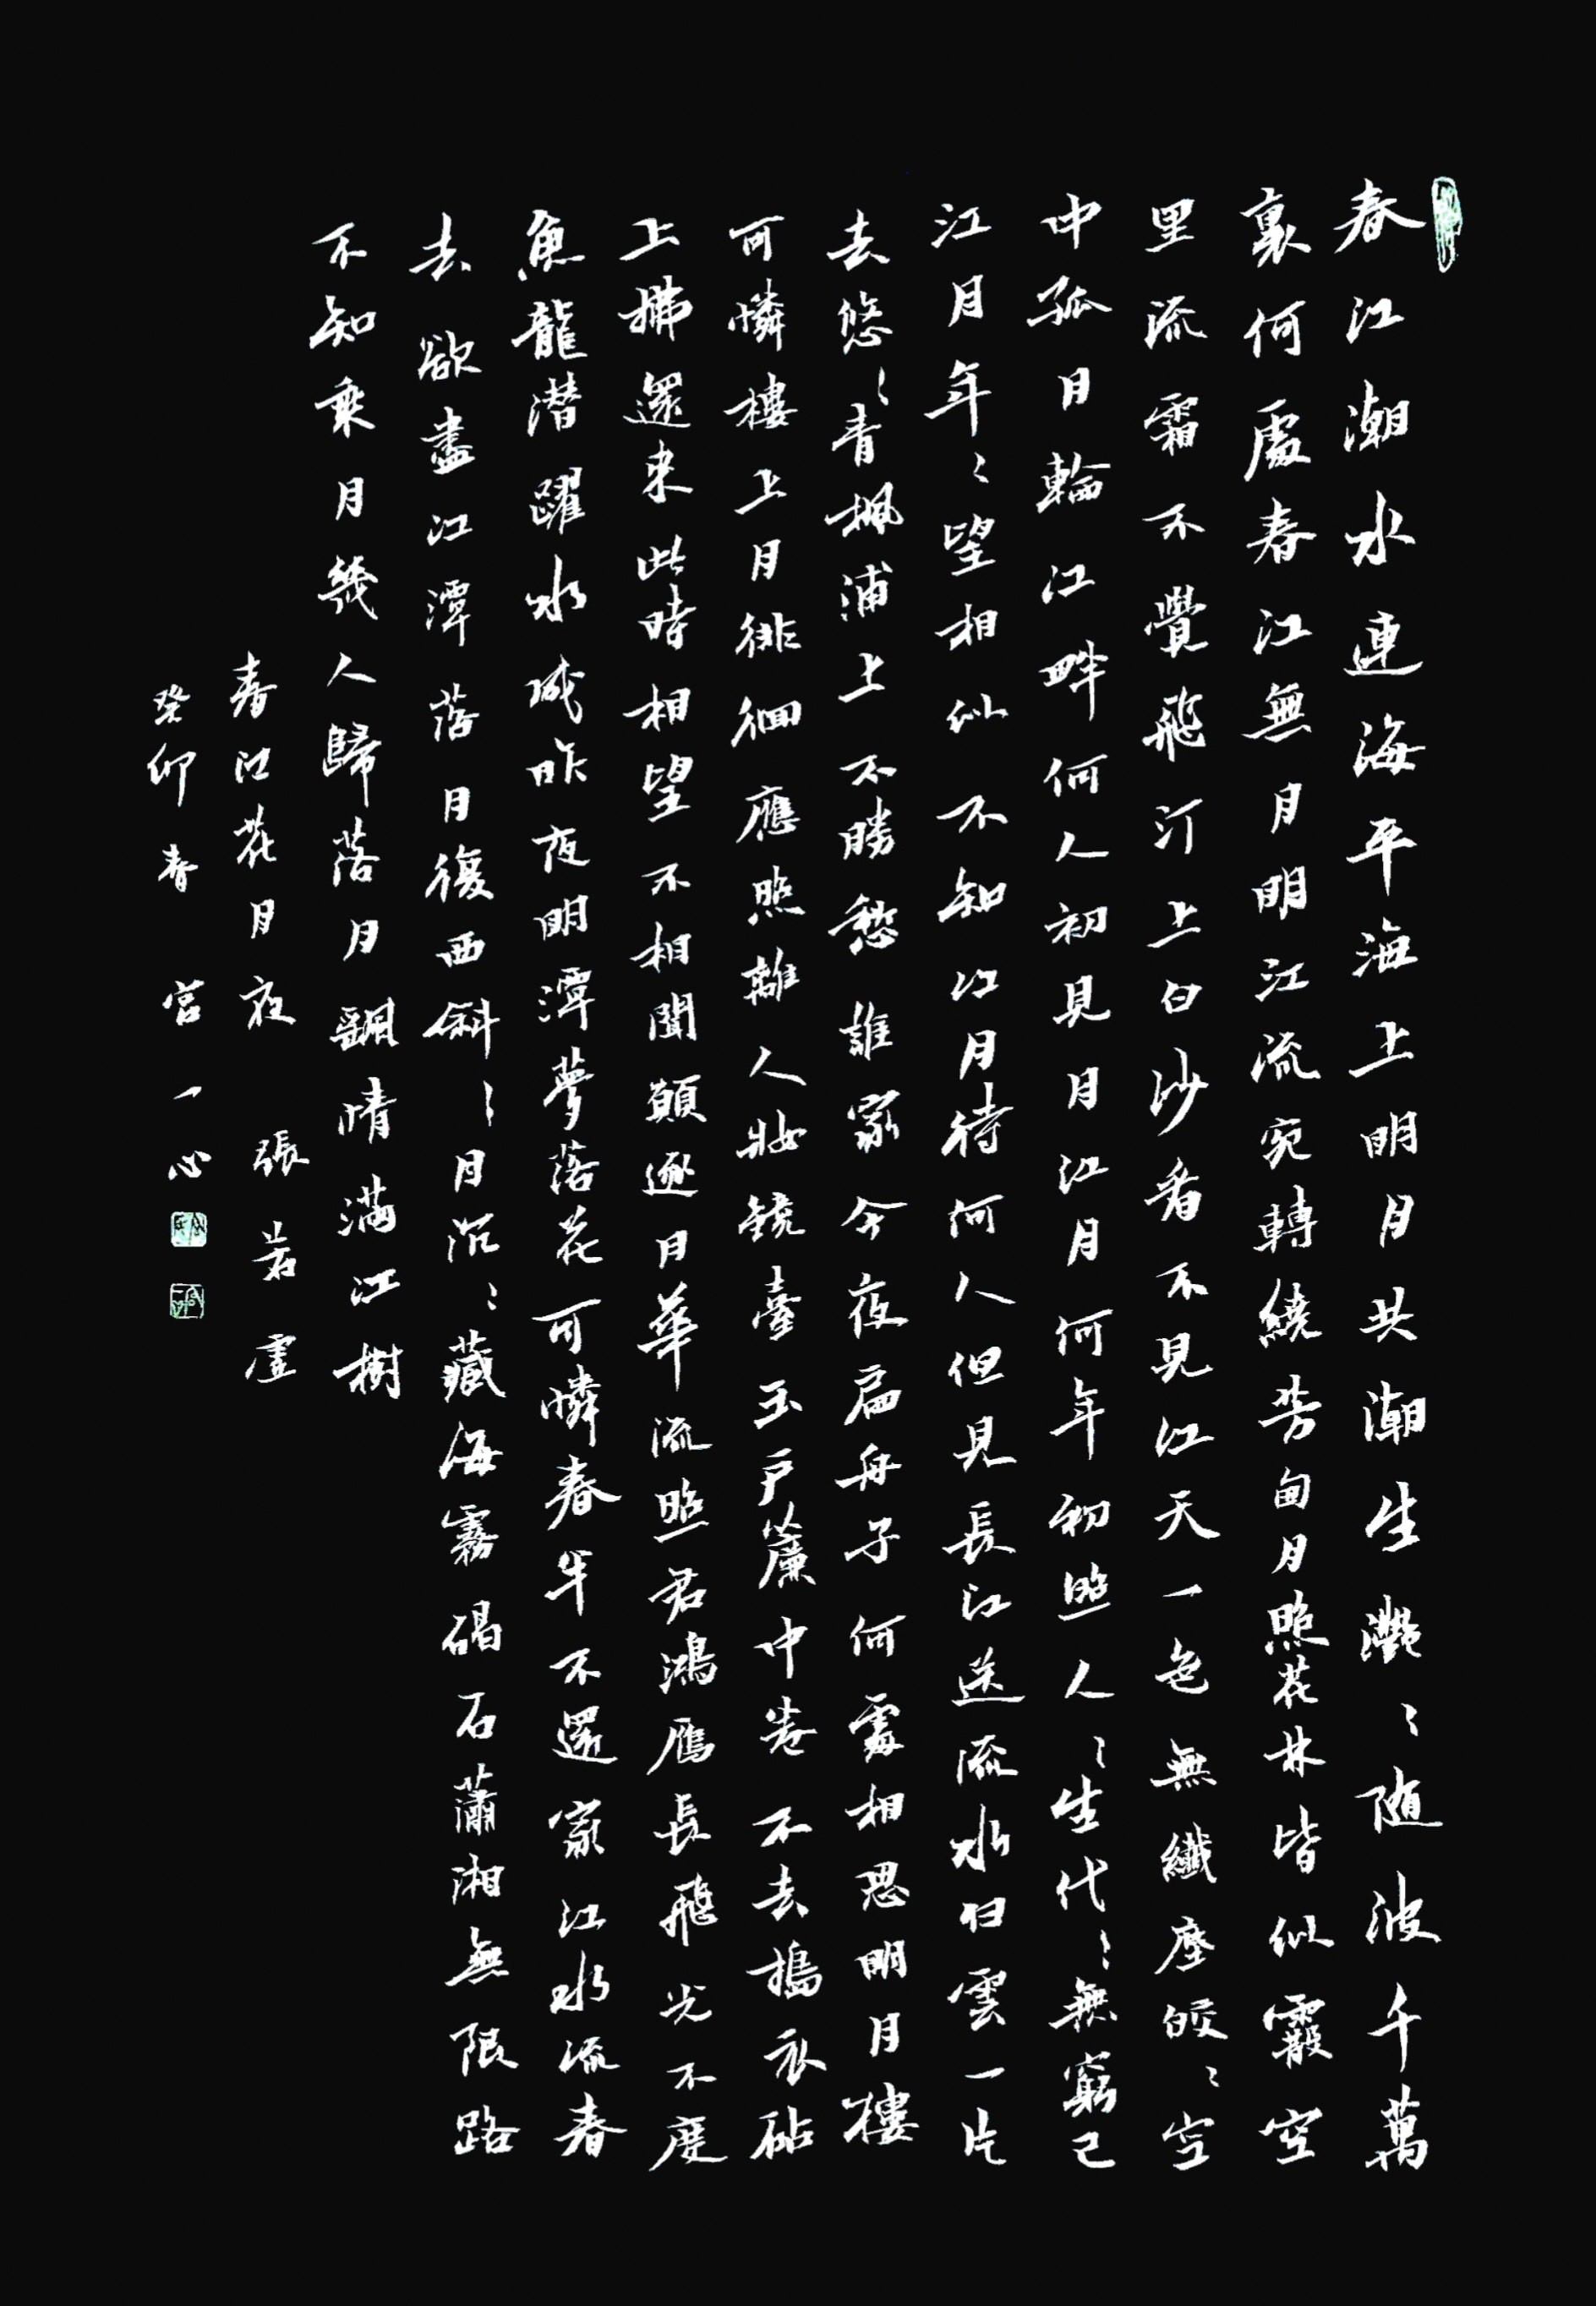 春江潮水連海平海上明月共潮生灩〻随波千萬
裏何處春江無月明江流宛轉繞芳甸月照花林皆似霰空
里流霜不覺飛汀上白沙看不見江天一色無纖塵皎〻空
中孤月輪江畔何人初見月江月何年初照人〻生代〻無窮已
江月年〻望相似不知江月待何人但見長江送流水白雲一片
去悠〻青楓浦上不勝愁誰家今夜扁舟子何處相思明月樓
可憐樓上月徘徊應照離人妝鏡臺玉户簾中卷不去搗衣砧
上拂還来此時相望不相聞願逐月華流照君鴻雁長飛光不度
魚龍潜躍水成昨夜明潭夢落花可憐春半不還家江水流春
去欲盡江潭落月復西斜〻月沉〻藏海霧碣石瀟湘無限路
不知乘月幾人歸落月颻情滿江樹
春江花月夜 張若虛
癸卯春 宫一心